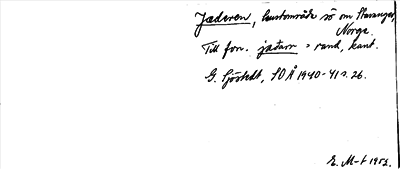 Jæderen, kustområde sö om Stavanger,
Norge.
Till fvn. jaðarr = rand, kant.
G. Sjöstedt, SOÅ 1940-41 s. 26.
E. M-t 1952.